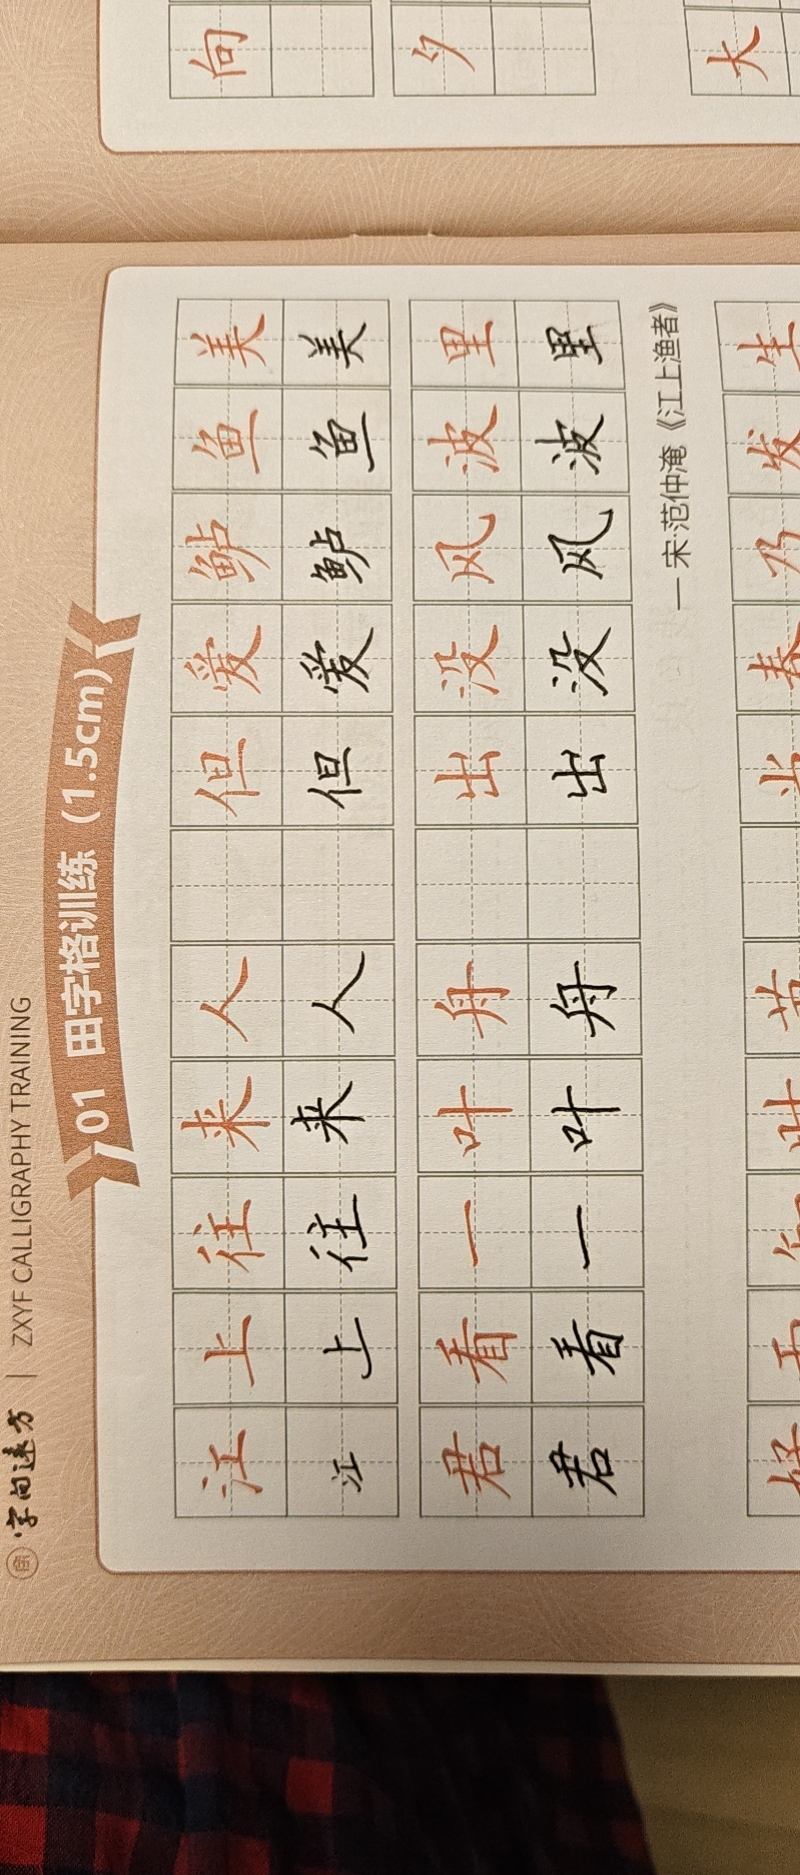 字间远方 | ZXYF CALLIGRAPHY TRAINING
01 田字格训练（1.5cm）
江上往来人 但爱鲈鱼美
江上往来人 但爱鲈鱼美
君看一叶舟 出没风波里
君看一叶舟 出没风波里
— 宋·范仲淹《江上渔者》
好雨知时节 当春乃发生
向
夕
大